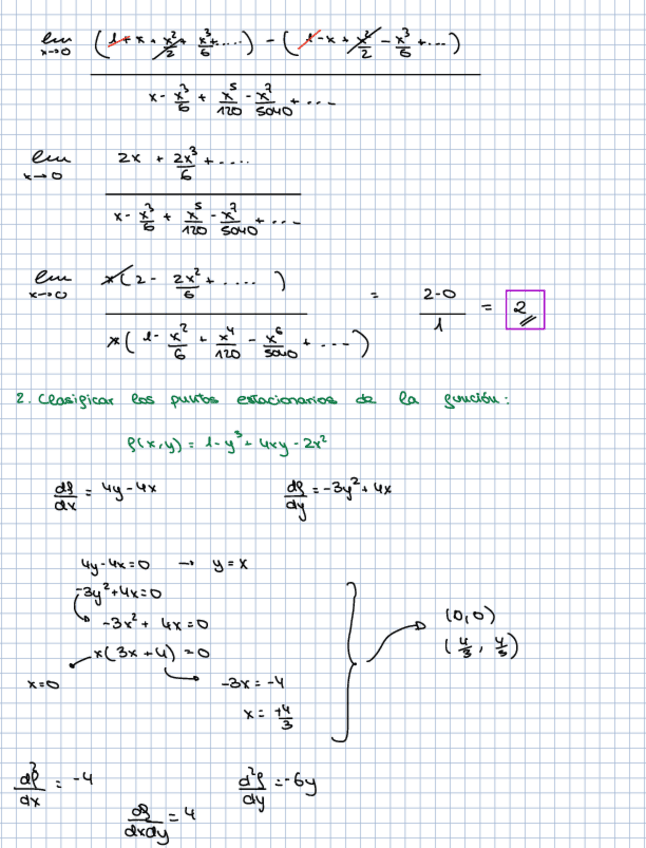 lim x→0 (1+x+x²/2+x³/6+....) - (1-x+x²/2-x³/6+...)
x-x³/6+x⁵/120-x⁷/5040+...
lim x→0 2x+2x³/6+....
x-x³/6+x⁵/120-x⁷/5040+...
lim x→0 x(2-2x²/6+....) = 2-0/1 = 2
x(1-x²/6+x⁴/120-x⁶/5040+...)
2. Clasificar los puntos estacionarios de la función:
f(x,y)=1-y³+4xy-2x²
df/dx=4y-4x df/dy=-3y²+4x
4y-4x=0 → y=x
-3y²+4x=0
-3x²+4x=0
x(3x+4)=0
x=0 -3x=-4
x=+4/3
(0,0)
(4/3, 4/3)
d²f/dx=-4 d²f/dy=-6y
df/dxdy=4